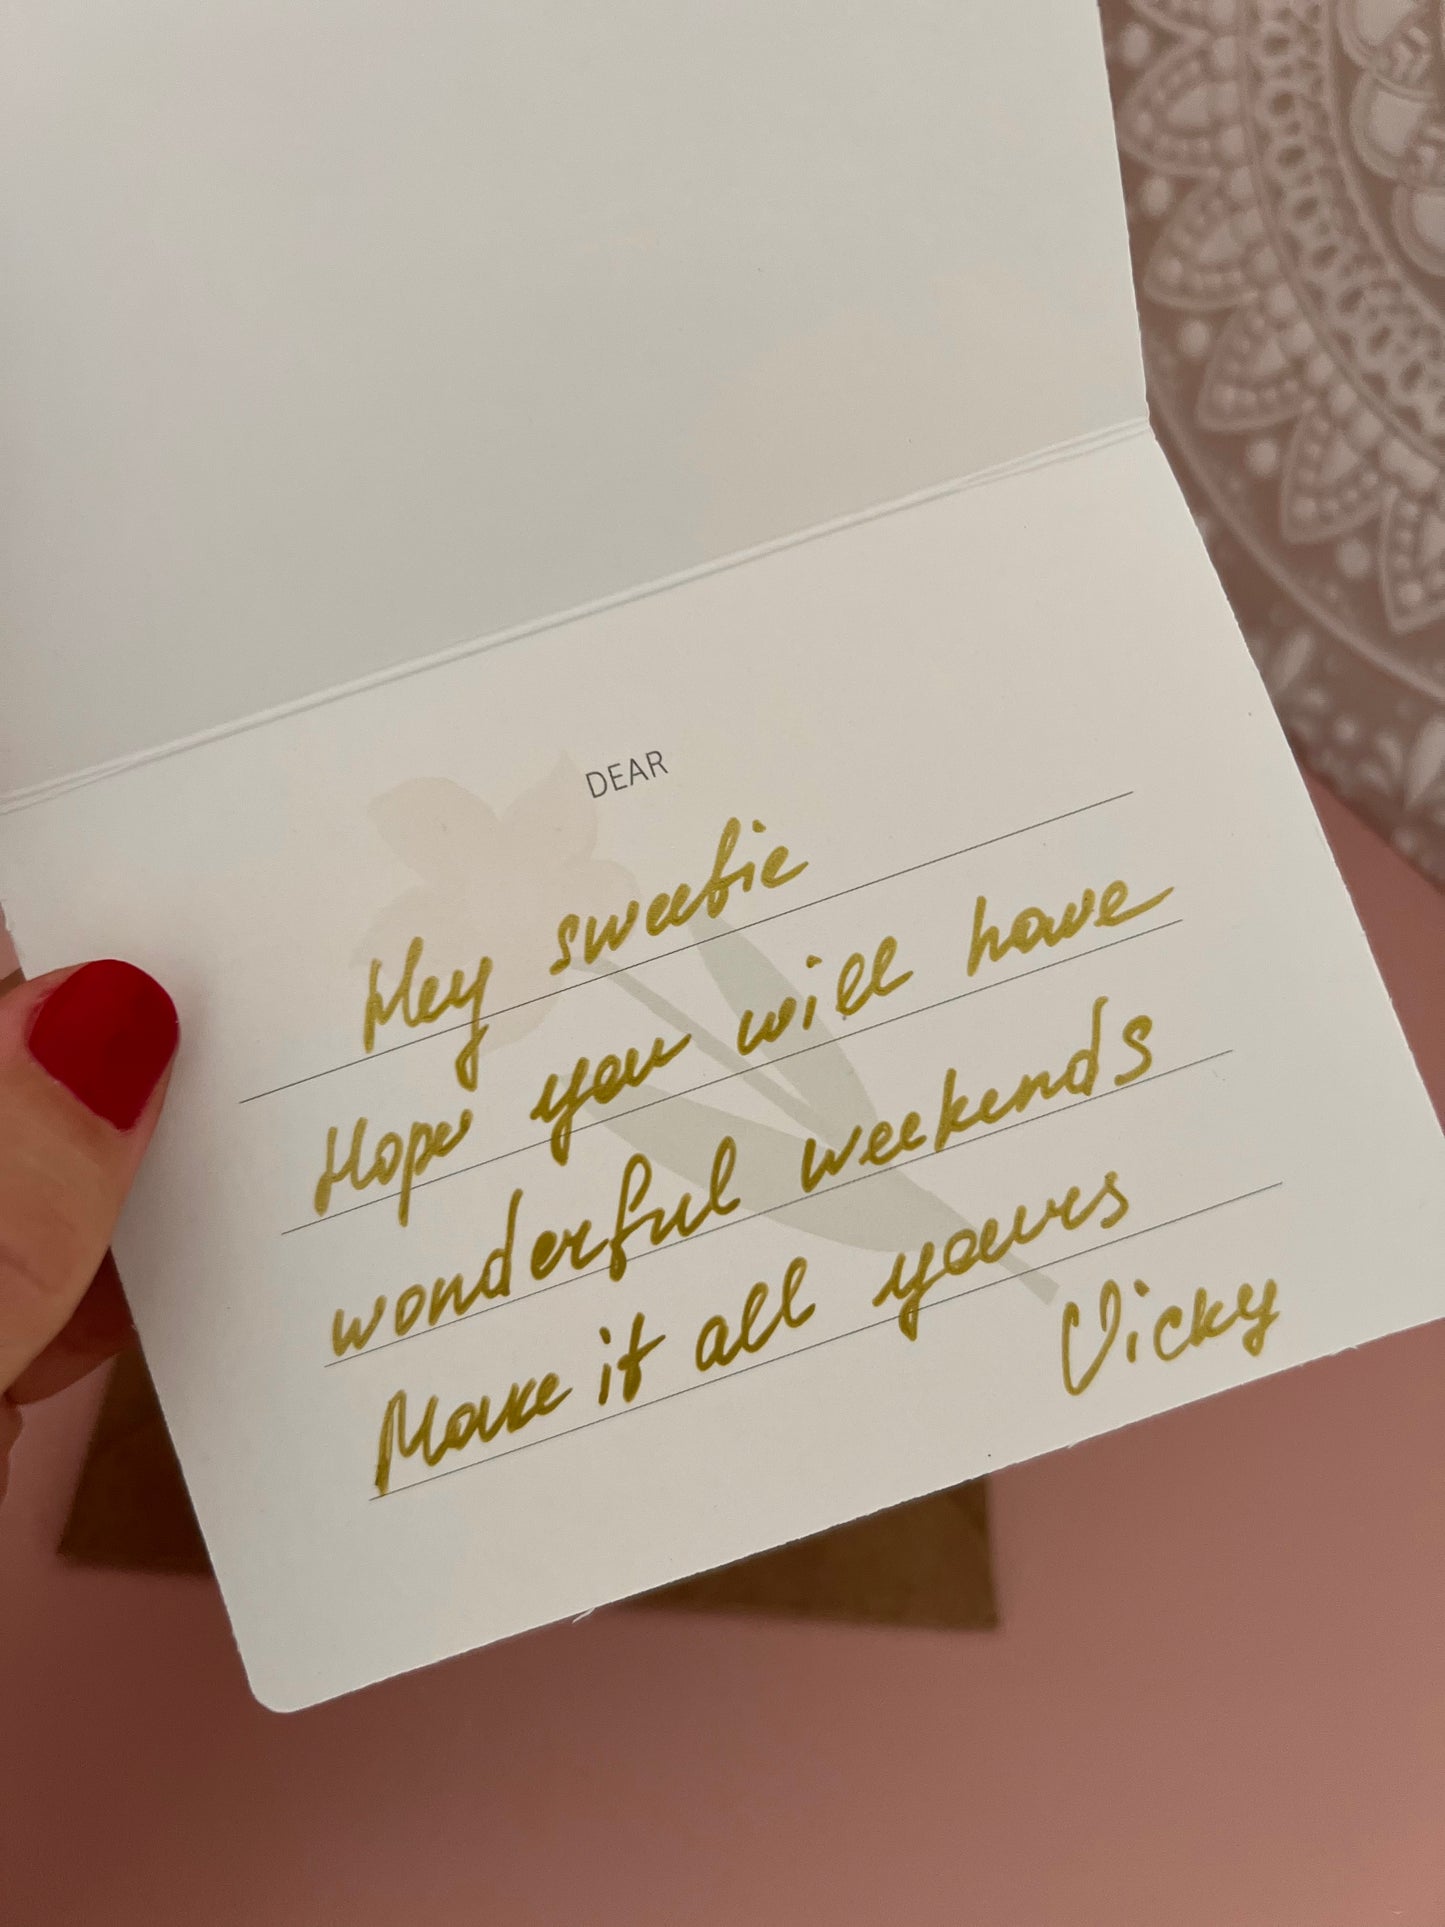 DEAR
Hey sweetie
Hope you will have
wonderful weekends
Make it all yours
Vicky